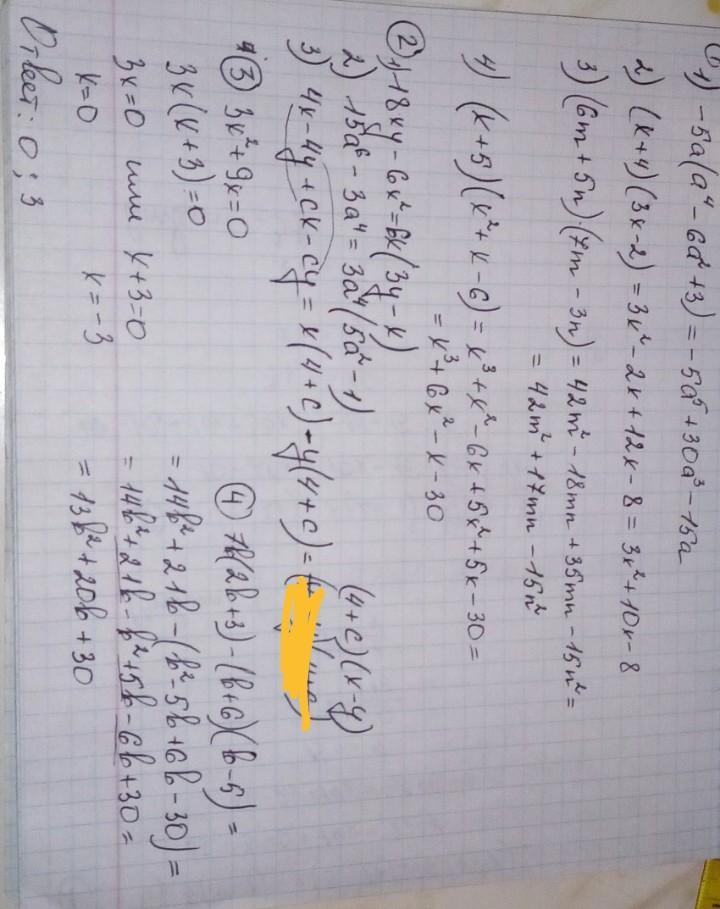 1) -5a(a⁴ - 6a² + 3) = -5a⁵ + 30a³ - 15a
2) (x+4)(3x-2) = 3x² - 2x + 12x - 8 = 3x² + 10x - 8
3) (6m + 5n)·(7m - 3n) = 42m² - 18mn + 35mn - 15n² =
= 42m² + 17mn - 15n²
4) (x+5)(x² + x - 6) = x³ + x² - 6x + 5x² + 5x - 30 =
= x³ + 6x² - x - 30
② 1) 18xy - 6x² = 6x(3y - x)
2) 15a⁶ - 3a⁴ = 3a⁴(5a² - 1)
3) 4x - 4y + cx - cy = x(4+c) - y(4+c) = (4+c)(x-y)
③ 3x² + 9x = 0
3x(x+3) = 0
3x = 0 или x+3 = 0
x = 0 x = -3
Ответ: 0; 3
④ 7b(2b+3) - (b+6)(b-5) =
= 14b² + 21b - (b² - 5b + 6b - 30) =
= 14b² + 21b - b² + 5b - 6b + 30 =
= 13b² + 20b + 30